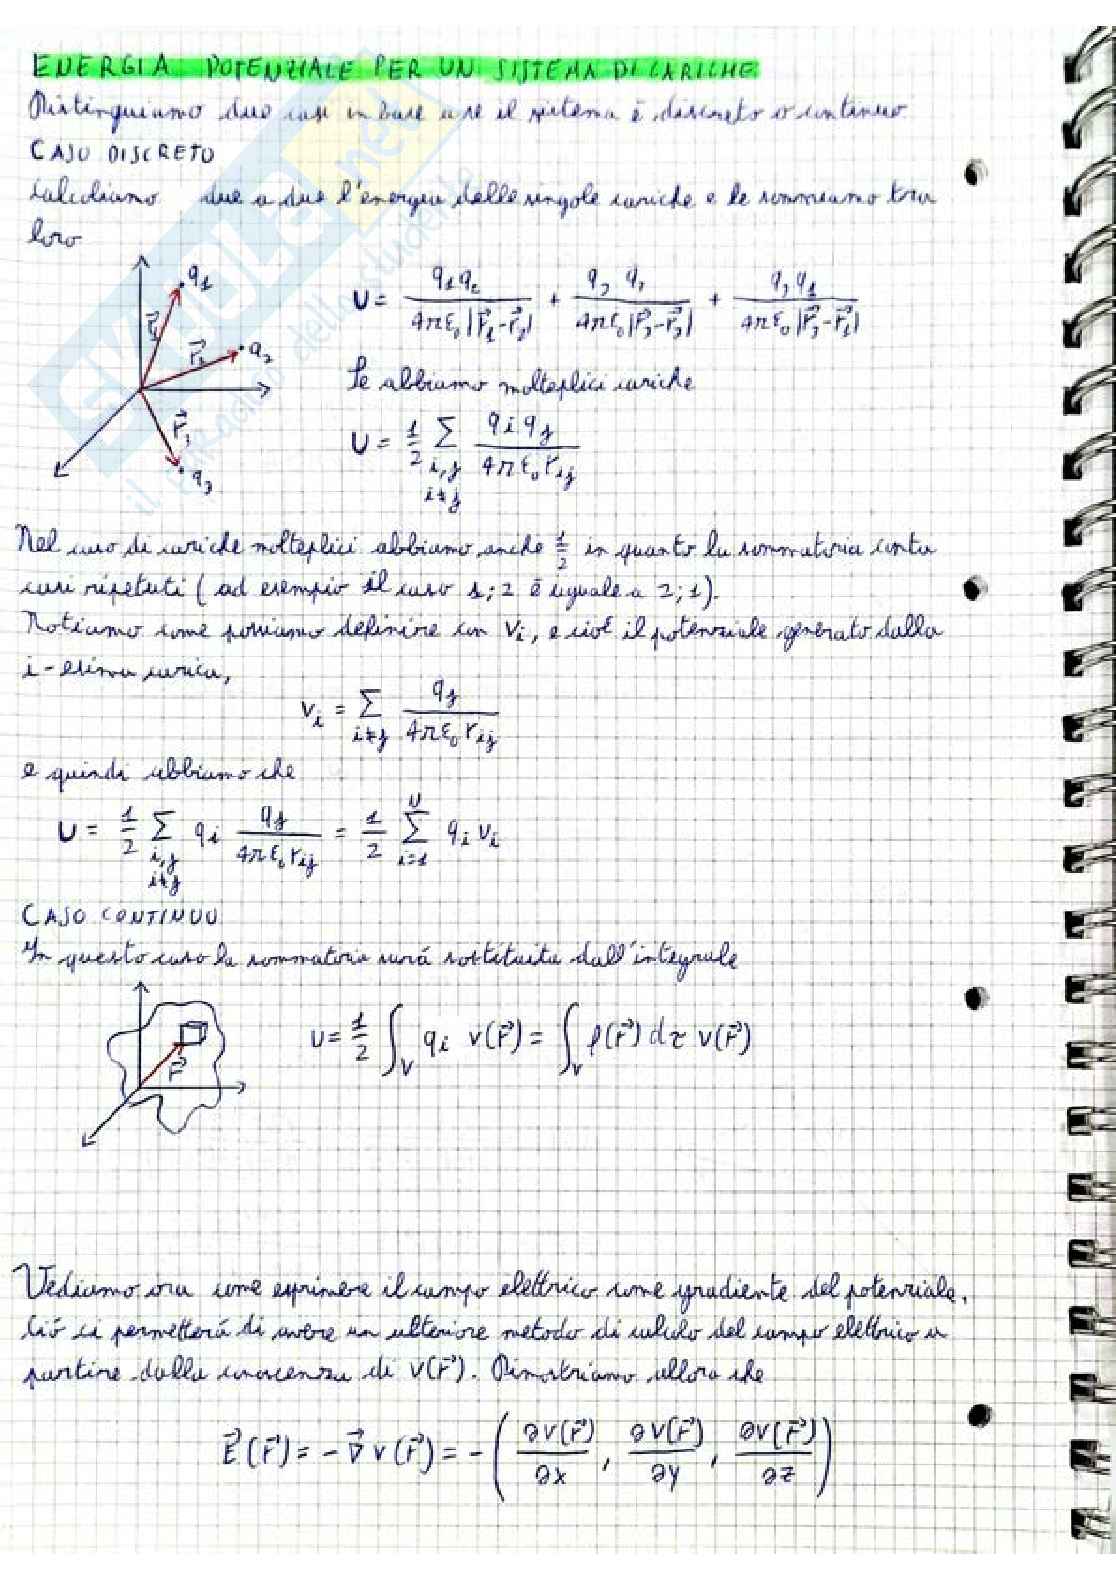 ENERGIA POTENZIALE PER UN SISTEMA DI CARICHE
Distinguiamo due casi in base a se il sistema è discreto o continuo
CASO DISCRETO
Calcoliamo due a due l'energia delle singole cariche e le sommiamo tra
loro
q1
r⃗1
q2
r⃗2
r⃗3
q3
U = q1q2 / 4πε₀|r⃗1-r⃗2| + q2 q3 / 4πε₀|r⃗2-r⃗3| + q3q1 / 4πε₀|r⃗3-r⃗1|
Se abbiamo molteplici cariche
U = 1/2 Σ i,j i≠j qi qj / 4πε₀ rij
Nel caso di cariche molteplici abbiamo anche 1/2 in quanto la sommatoria conta
casi ripetuti (ad esempio il caso 1;2 è uguale a 2;1).
Notiamo come possiamo definire con Vi, e cioè il potenziale generato dalla
i-esima carica,
Vi = Σ i≠j qj / 4πε₀ rij
e quindi abbiamo che
U = 1/2 Σ i,j i≠j qi qj / 4πε₀ rij = 1/2 Σ i=1 N qi Vi
CASO CONTINUO
In questo caso la sommatoria sarà sostituita dall'integrale
r⃗
U = 1/2 ∫V qi V(r⃗) = ∫V ρ(r⃗) dτ V(r⃗)
Vediamo ora come esprimere il campo elettrico come gradiente del potenziale.
Ciò ci permetterà di avere un ulteriore metodo di calcolo del campo elettrico a
partire dalla conoscenza di V(r⃗). Dimostriamo allora che
E⃗(r⃗) = -∇⃗ V(r⃗) = -( ∂V(r⃗)/∂x , ∂V(r⃗)/∂y , ∂V(r⃗)/∂z )
SKUOLA.net